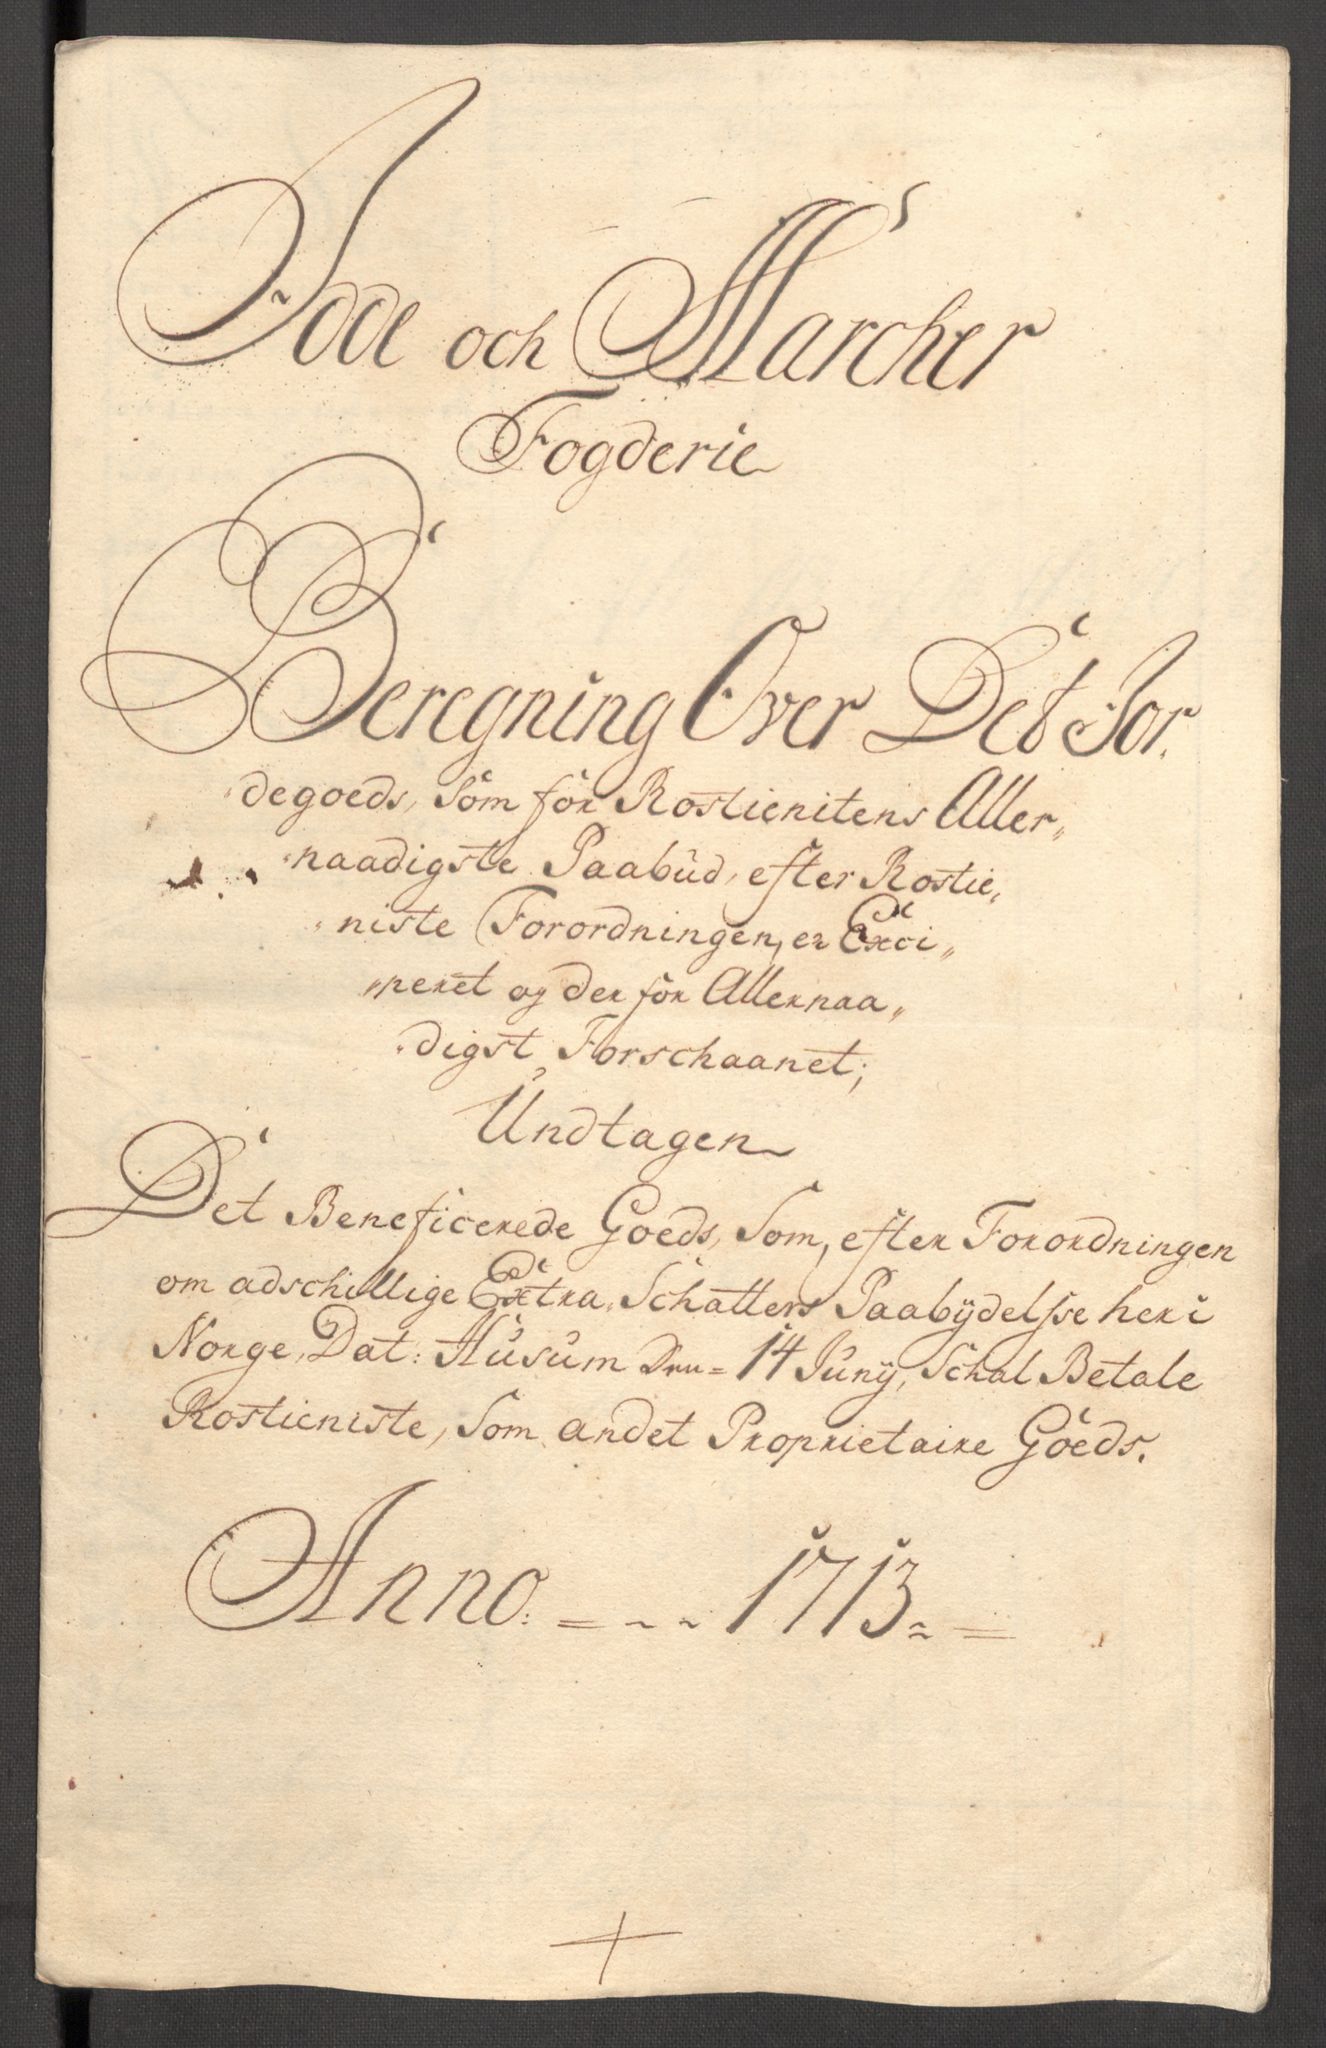 Idde och Marcher
Fogderie
Beregning Over Det Jor„
„degoeds, Som for Rostienitens Aller„
„naadigste Paabud, efter Rostie„
„niste Forordningen, er Exci„
„peret og der for Allernaa„
„digst Forschaanet;
Undtagen
Det Beneficerede Goeds, Som, efter Forordningen
om adschillige Extra Schatters Paabÿdelsse her i
Norge, Dat: Husum Den = 14 Junÿ, Schal Betale
Rostieniste, Som andet Proprietaire Goeds.
Anno. = ~ ~ 1713 ~ =